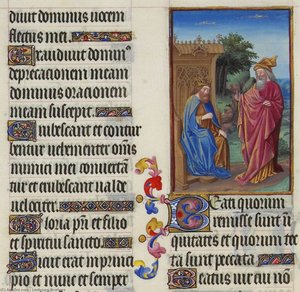 divit dominus vocem
fletus mei.
Exaudivit dominus
deprecationem meam
dominus orationem
meam suscepit.
Erubescant et contur
bentur vehementer omnes
inimici mei convertan
tur et erubescant valde
velociter.
Gloria patri et filio
et spiritui sancto.
Sicut erat in princi
pio et nunc et semper
Beati quorum
remisse sunt i
niquitates et quorum
tecta sunt peccata.
Beatus vir cui non